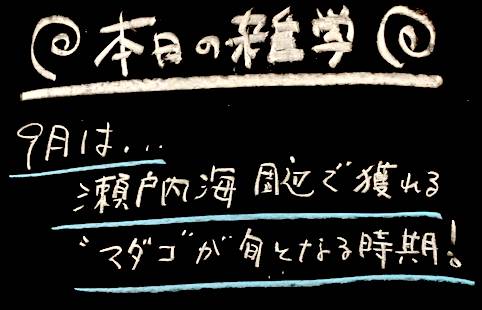 本日の雑学
9月は...
瀬戸内海周辺で獲れる
"マダコ"が旬となる時期!